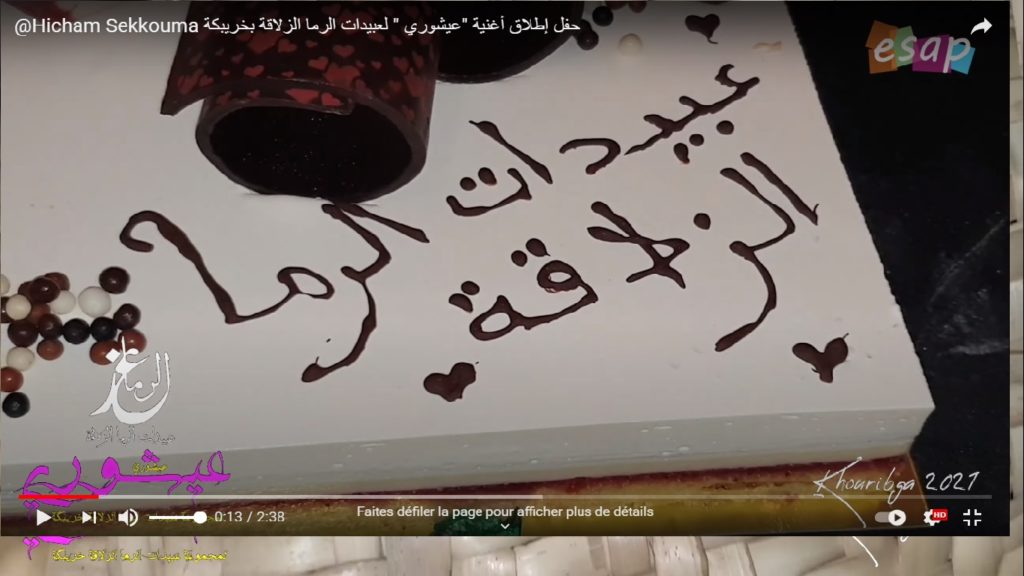 @Hicham Sekkouma حفل إطلاق أغنية "عيشوري " لعبيدات الرما الزلاقة بخريبكة
esap
عبيدات الرما
الزلاقة
الرما
عبيدات الرما الزلاقة
عيشوري
عيشوري
Khouribga 2021
0:13 / 2:38
Faites défiler la page pour afficher plus de détails
HD
الزلاقة خريبكة
لمجموعة عبيدات الرما الزلاقة خريبكة